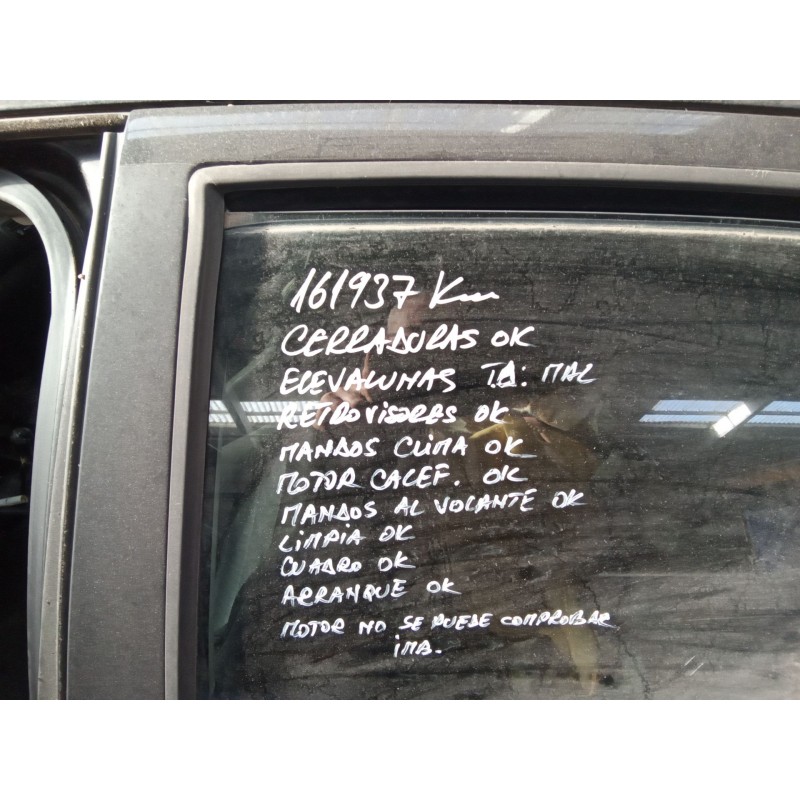 161937 Km
CERRADURAS OK
ELEVALUNAS TD: MAL
RETROVISORES OK
MANDOS CLIMA OK
MOTOR CALEF. OK
MANDOS AL VOLANTE OK
LIMPIA OK
CUADRO OK
ARRANQUE OK
MOTOR NO SE PUEDE COMPROBAR
IMA.